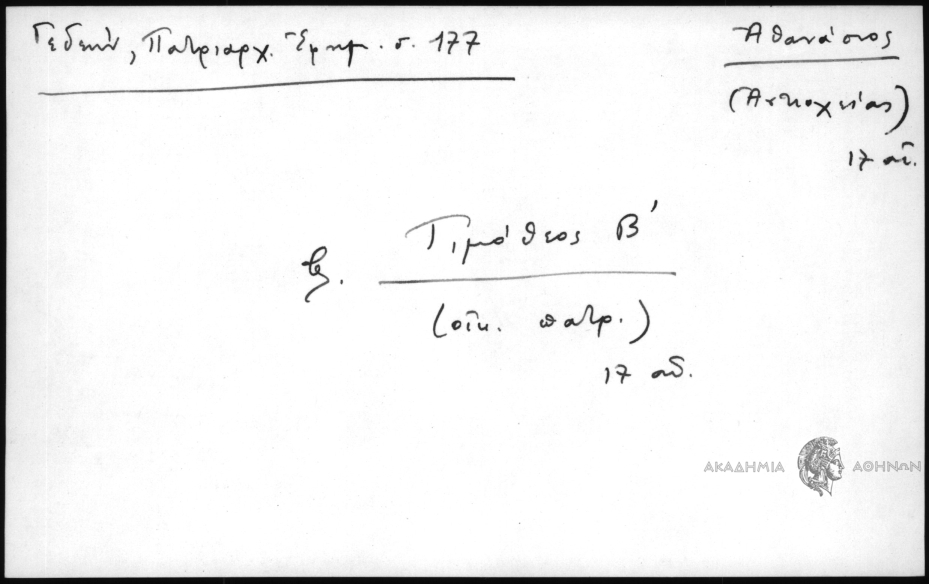 Γεδεών, Πατριαρχ. Ἐφημ. σ. 177
Ἀθανάσιος
(Ἀντιοχείας)
17 αἰ.
βλ. Τιμόθεος Β'
(οἰκ. πατρ.)
17 αἰ.
ΑΚΑΔΗΜΙΑ ΑΘΗΝΩΝ